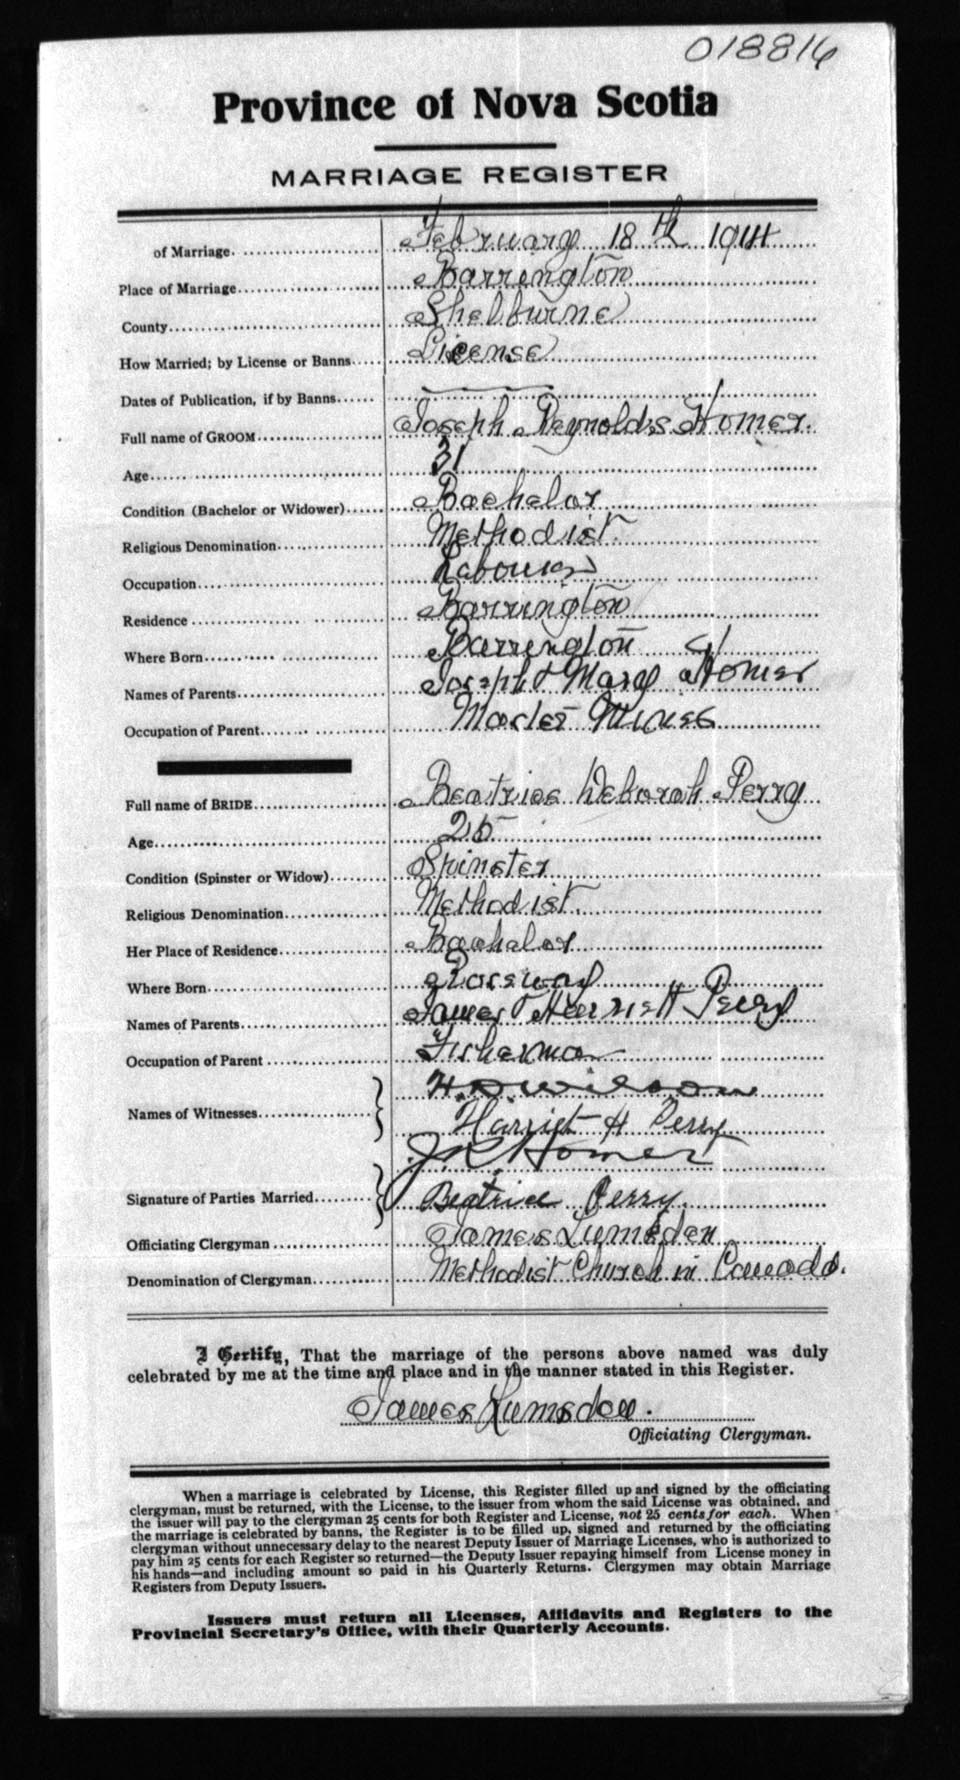 018816
Province of Nova Scotia
MARRIAGE REGISTER
of Marriage. February 18th 1914
Place of Marriage Barrington
County Shelburne
How Married; by License or Banns License
Dates of Publication, if by Banns
Full name of GROOM Joseph Reynolds Homer.
Age 31
Condition (Bachelor or Widower) Bachelor
Religious Denomination Methodist.
Occupation Labourer
Residence Barrington
Where Born Barrington
Names of Parents Joseph & Mary Homer
Occupation of Parent Master
Full name of BRIDE Beatrice Deborah Perry
Age 25
Condition (Spinster or Widow) Spinster
Religious Denomination Methodist.
Her Place of Residence Bachelor
Where Born
Names of Parents James & Harriett Perry
Occupation of Parent Fisherman
Names of Witnesses H. D. Wilson
Harriet H Perry
J. R. Homer
Signature of Parties Married Beatrice Perry.
Officiating Clergyman James Lumsden
Denomination of Clergyman Methodist Church in Canada.
I Certify, That the marriage of the persons above named was duly
celebrated by me at the time and place and in the manner stated in this Register.
James Lumsden.
Officiating Clergyman.
When a marriage is celebrated by License, this Register filled up and signed by the officiating
clergyman, must be returned, with the License, to the issuer from whom the said License was obtained, and
the issuer will pay to the clergyman 25 cents for both Register and License, not 25 cents for each. When
the marriage is celebrated by banns, the Register is to be filled up, signed and returned by the officiating
clergyman without unnecessary delay to the nearest Deputy Issuer of Marriage Licenses, who is authorized to
pay him 25 cents for each Register so returned—the Deputy Issuer repaying himself from License money in
his hands—and including amount so paid in his Quarterly Returns. Clergymen may obtain Marriage
Registers from Deputy Issuers.
Issuers must return all Licenses, Affidavits and Registers to the
Provincial Secretary's Office, with their Quarterly Accounts.